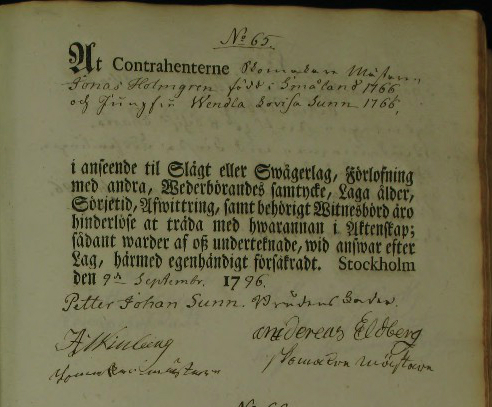 No 65.
At Contrahenterne Skomakare Mästaren
Jonas Holmgren född i Småland 1766
och Jungfru Wendla Lovisa Sunn 1766,
i anseende til Slägt eller Swågerlag, Förlofning
med andra, Wederbörandes samtycke, Laga ålder,
Sörjetid, Afwittring, samt behörigt Witnesbörd äro
hinderlöse at träda med hwarannan i Äktenskap;
sådant warder af oß underteknade, wid answar efter
Lag, härmed egenhändigt försäkradt. Stockholm
den 9de Septembr. 1796.
Petter Johan Sunn. Brudens Fader.
Andereas Eldberg